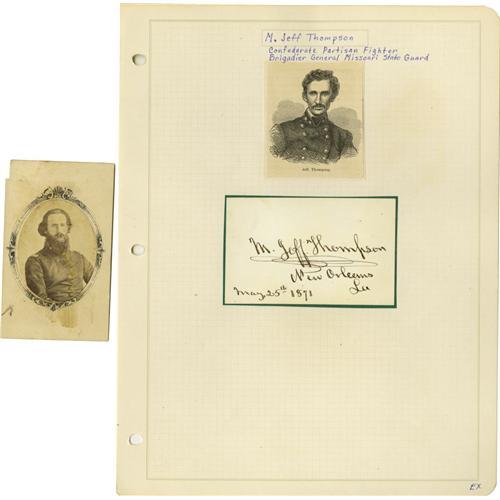 M. Jeff Thompson
Confederate Partisan Fighter
Brigadier General Missouri State Guard
Jeff. Thompson.
M. Jeff Thompson
New Orleans
La
May 25th 1871
EX